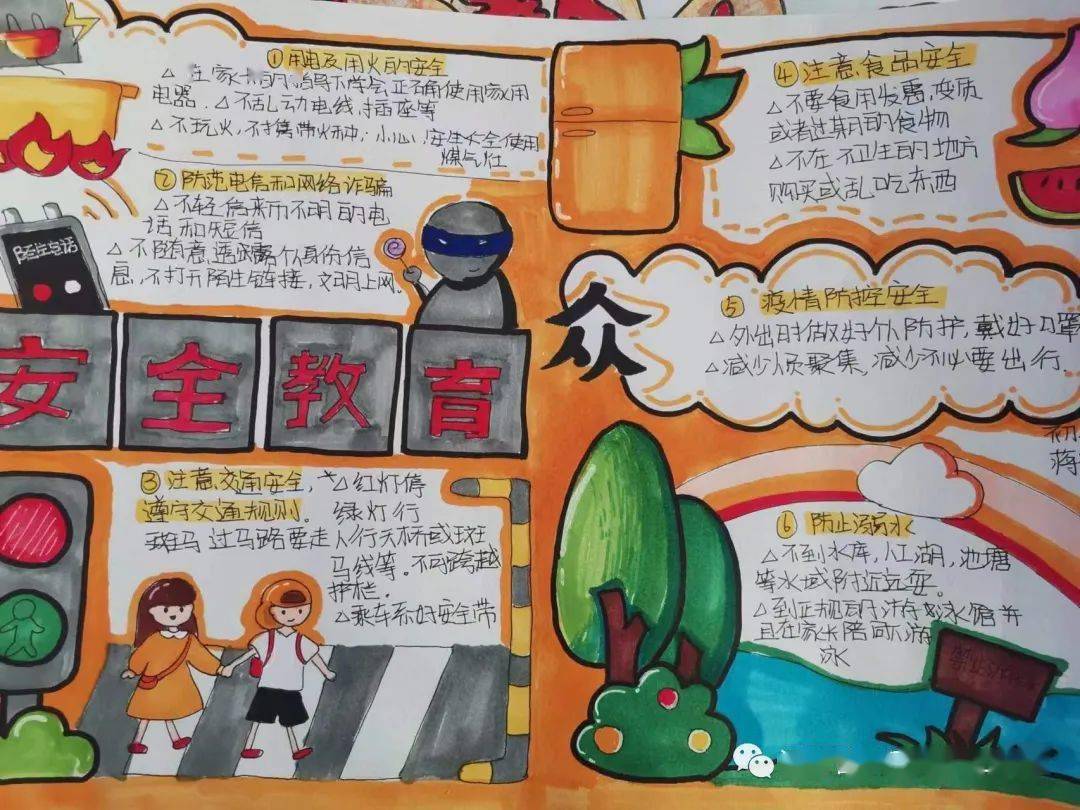 ①用电及用火的安全
△在家长的指导下学会正确使用家用
电器.△不乱动电线,插座等
△不玩火,不携带火种;小心、安全使用
煤气灶
②防范电信和网络诈骗
△不轻信来历不明的电
话和短信
△不随意透露个人身份信
息,不打开陌生链接,文明上网。
陌生电话
安全教育
③注意交通安全,△红灯停
遵守交通规则。绿灯行
过马路要走人行天桥或斑
马线等。不可跨越
护栏。
△乘车系好安全带
④注意食品安全
△不要食用发霉,变质
或者过期的食物
△不在不卫生的地方
购买或乱吃东西
众
⑤疫情防控安全
△外出时做好个人防护,戴好口罩
△减少人员聚集,减少不必要出行
初
蒋
⑥防止溺水
△不到水库,江湖,池塘
等水域附近玩耍。
△到正规的游泳馆并
且在家长陪同下游
泳